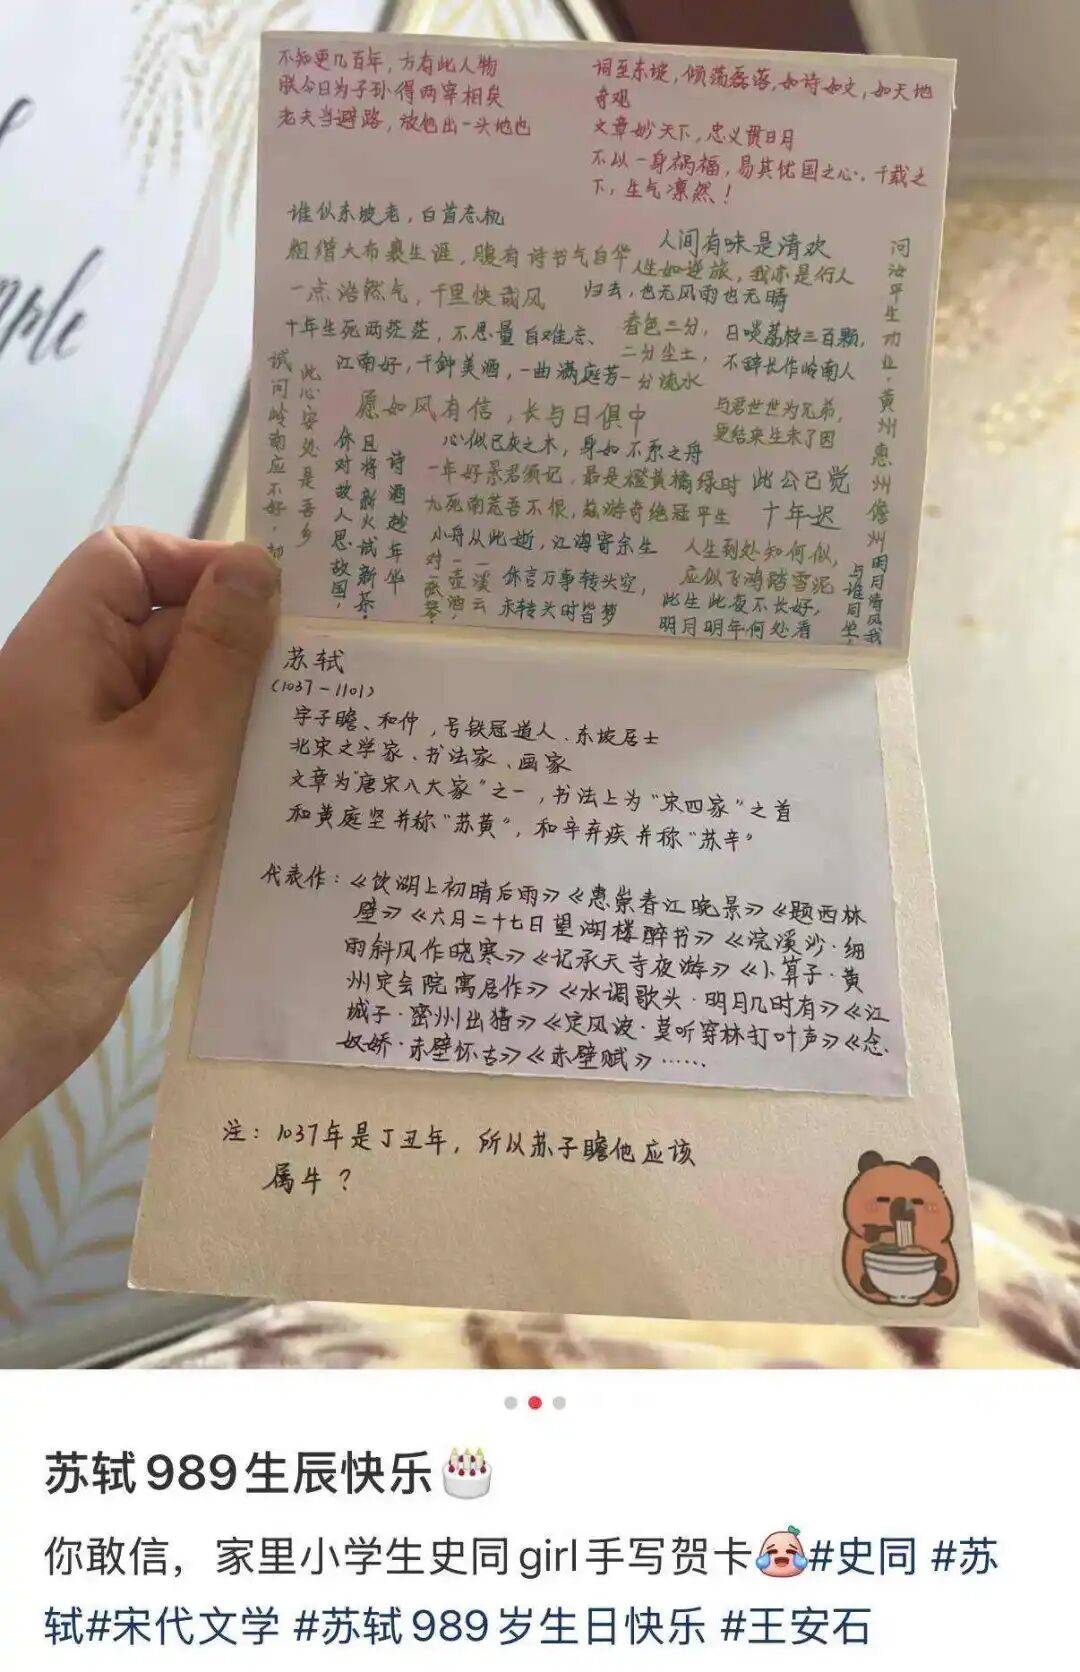 不知更几百年，方有此人物
朕今日为子孙得两宰相矣
老夫当避路，放他出一头地也
词至东坡，倾荡磊落，如诗如文，如天地
奇观
文章妙天下，忠义贯日月
不以一身祸福，易其忧国之心，千载之
下，生气凛然！
谁似东坡老，白首忘机
粗缯大布裹生涯，腹有诗书气自华
一点浩然气，千里快哉风
人间有味是清欢
人生如逆旅，我亦是行人
归去，也无风雨也无晴
问汝平生功业，黄州惠州儋州
十年生死两茫茫，不思量自难忘、
江南好，千钟美酒，一曲满庭芳
春色三分，
二分尘土，
一分流水
日啖荔枝三百颗，
不辞长作岭南人
试问岭南应不好，却
此心安处是吾乡
愿如风有信，长与日俱中
与君世世为兄弟，
更结来生未了因
休对故人思故国，
且将新火试新茶，
诗酒趁年华
心似已灰之木，身如不系之舟
一年好景君须记，最是橙黄橘绿时
此公已觉
十年迟
九死南荒吾不恨，兹游奇绝冠平生
小舟从此逝，江海寄余生
对一张琴，
一壶酒，
一溪云
休言万事转头空，
未转头时皆梦
人生到处知何似，
应似飞鸿踏雪泥
此生此夜不长好，
明月明年何处看
与谁同坐，
明月清风我
苏轼
（1037－1101）
字子瞻、和仲，号铁冠道人、东坡居士
北宋文学家、书法家、画家
文章为“唐宋八大家”之一，书法上为“宋四家”之首
和黄庭坚并称“苏黄”，和辛弃疾并称“苏辛”
代表作：《饮湖上初晴后雨》《惠崇春江晚景》《题西林
壁》《六月二十七日望湖楼醉书》《浣溪沙·细
雨斜风作晓寒》《记承天寺夜游》《卜算子·黄
州定会院寓居作》《水调歌头·明月几时有》《江
城子·密州出猎》《定风波·莫听穿林打叶声》《念
奴娇·赤壁怀古》《赤壁赋》……
注：1037年是丁丑年，所以苏子瞻他应该
属牛？
苏轼989生辰快乐🎂
你敢信，家里小学生史同girl手写贺卡#史同 #苏
轼#宋代文学 #苏轼989岁生日快乐 #王安石